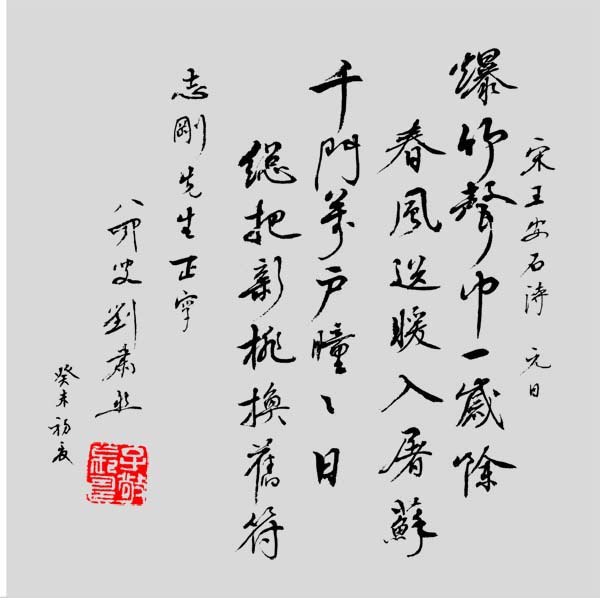 宋王安石诗 元日
爆竹聲中一歲除
春風送暖入屠蘇
千門萬户曈〻日
總把新桃換舊符
志剛先生正字
劉肅
癸未初夏